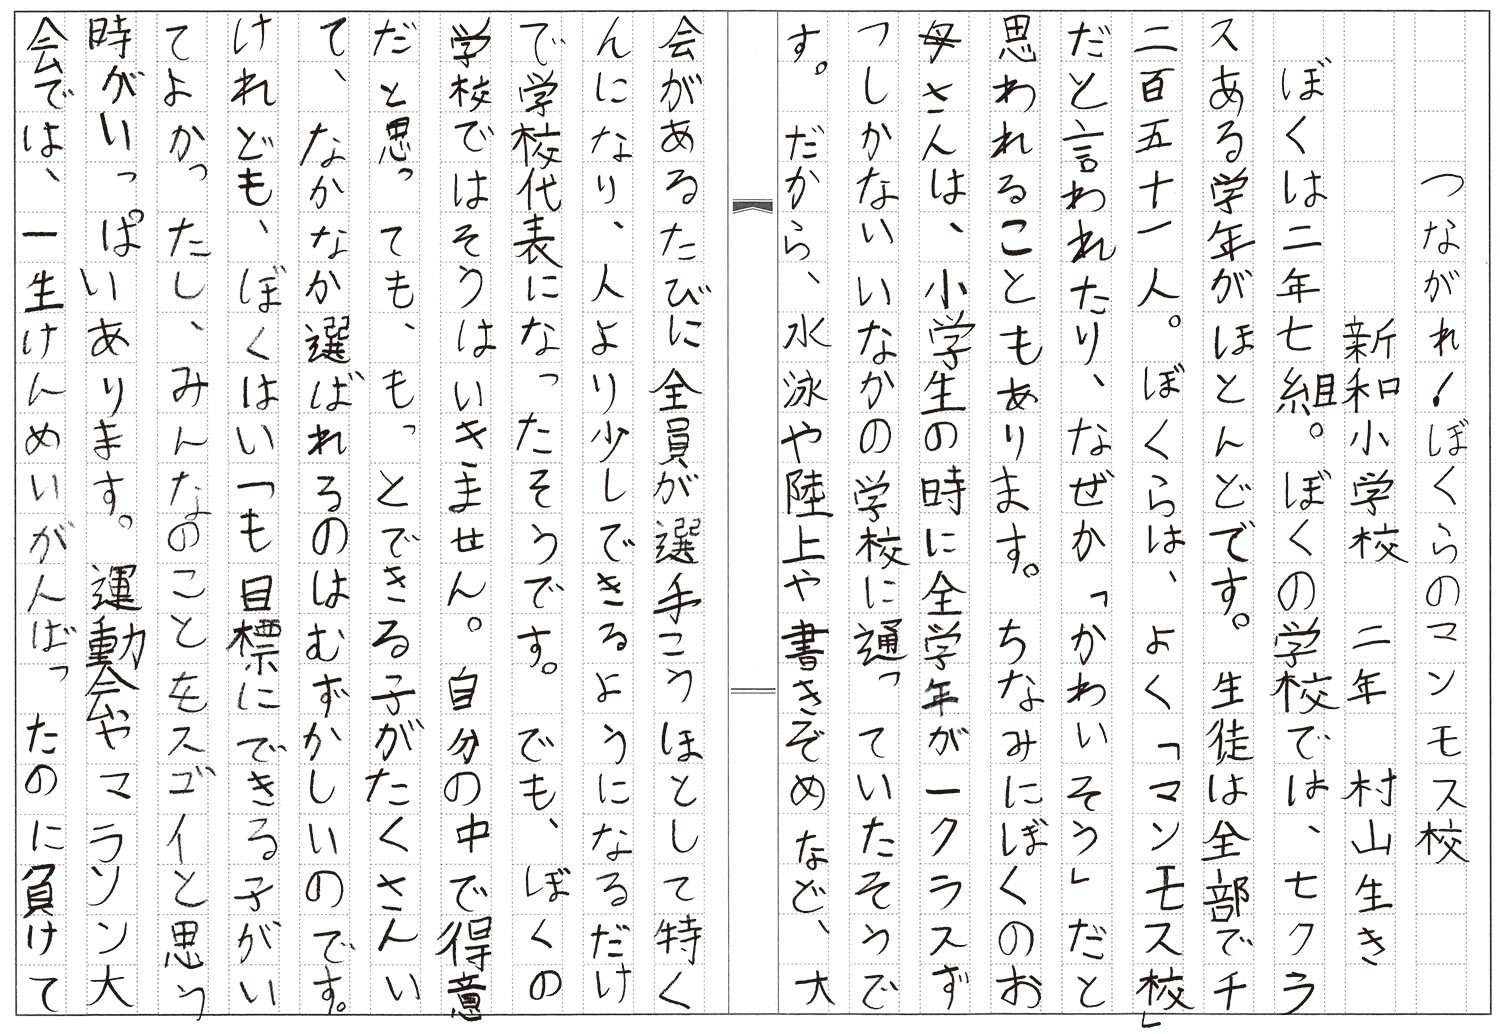 つながれ！ぼくらのマンモス校
新和小学校　二年　村山生き
ぼくは二年七組。ぼくの学校では、七クラ
スある学年がほとんどです。生徒は全部で千
二百五十一人。ぼくらは、よく「マンモス校」
だと言われたり、なぜか「かわいそう」だと
思われることもあります。ちなみにぼくのお
母さんは、小学生の時に全学年が一クラスず
つしかないいなかの学校に通っていたそうで
す。だから、水泳や陸上や書きぞめなど、大
会があるたびに全員が選手こうほとして特く
んになり、人より少しできるようになるだけ
で学校代表になったそうです。でも、ぼくの
学校ではそうはいきません。自分の中で得意
だと思っても、もっとできる子がたくさんい
て、なかなか選ばれるのはむずかしいのです。
けれども、ぼくはいつも目標にできる子がい
てよかったし、みんなのことをスゴイと思う
時がいっぱいあります。運動会やマラソン大
会では、一生けんめいがんばったのに負けて